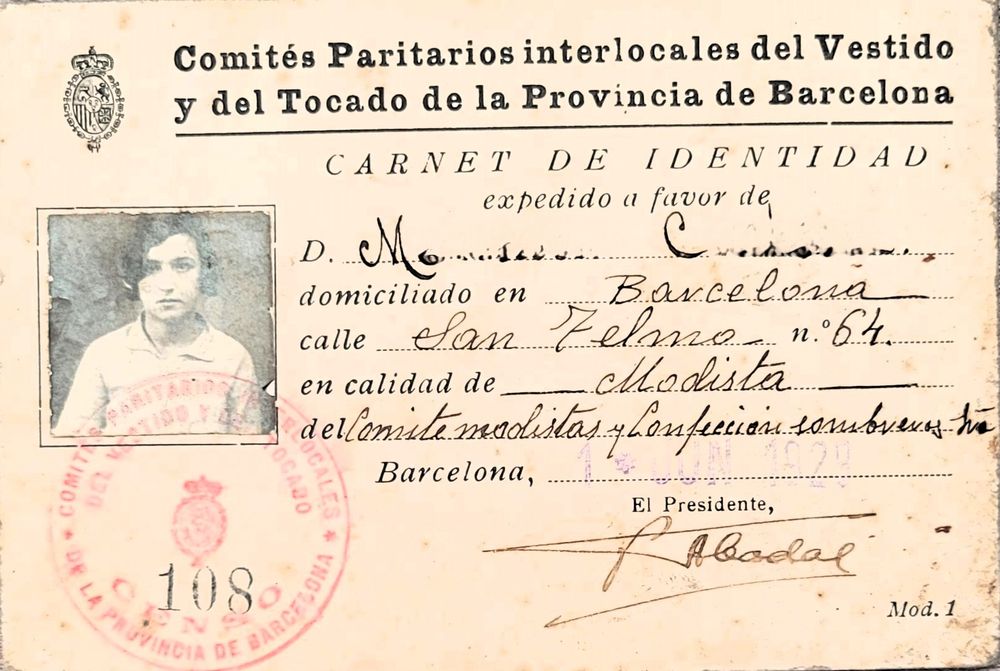 Comités Paritarios interlocales del Vestido
y del Tocado de la Provincia de Barcelona
CARNET DE IDENTIDAD
expedido a favor de
D. M C
domiciliado en Barcelona
calle San Telmo n.º 64.
en calidad de Modista
del Comite modistas y Confección sombreros
Barcelona, 1 * JUN 1929
El Presidente,
Abadal
Mod. 1
* COMITÉS PARITARIOS INTERLOCALES *
DEL VESTIDO Y DEL TOCADO
108
CENSO
DE LA PROVINCIA DE BARCELONA